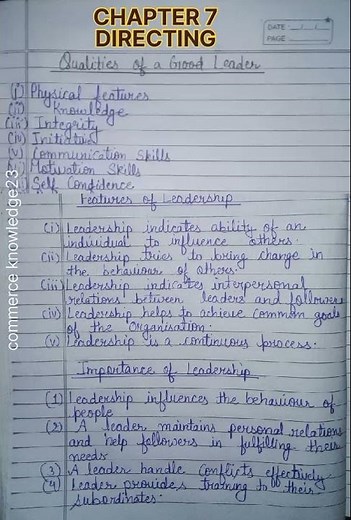 CHAPTER 7
DIRECTING
DATE:
PAGE:
Qualities of a Good Leader
(i) Physical features
(ii) Knowledge
(iii) Integrity
(iv) Initiative
(v) Communication Skills
Motivation Skills
Self Confidence
Features of Leadership
(i) Leadership indicates ability of an
individual to influence others.
(ii) Leadership tries to bring change in
the behaviour of others.
(iii) Leadership indicates interpersonal
relations between leaders and followers
(iv) Leadership helps to achieve common goals
of the Organisation.
(v) Leadership is a continuous process.
Importance of Leadership
(1) Leadership influences the behaviour of
people
(2) A leader maintains personal relations
and help followers in fulfilling their
needs
(3) A leader handle conflicts effectively.
(4) Leader provides training to their
subordinates.
commerce knowledge23